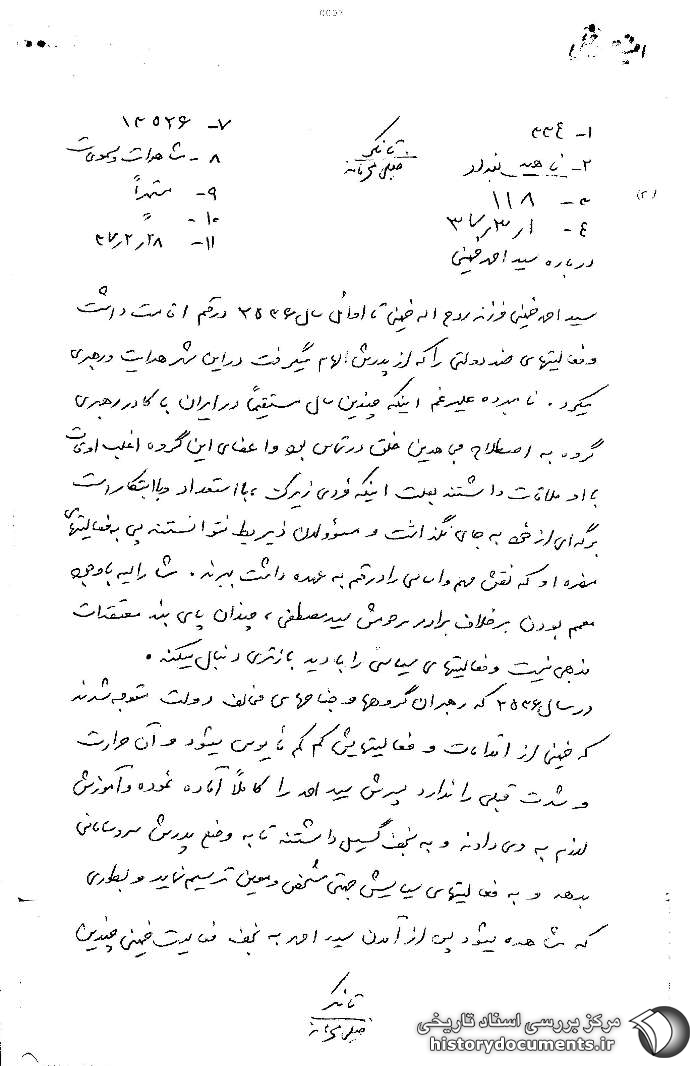 ۱- ۳۳۴
۲- ناهید بغداد
۳- ۱۱۸
۴- ۱ر۳ر۳۷
درباره سید احمد خمینی
۷- ۱۳۵۲۶
۸- مشاهدات و مسموعات
۹- مستمراً
۱۰- "
۱۱- ۲۸ر۲ر۳۷
تانک
خیلی محرمانه
(۲)
سید احمد خمینی فرزند روح اله خمینی تا اوائل سال ۲۵۳۶ در قم اقامت داشت
و فعالیتهای ضد دولتی را که از پدرش الهام میگرفت در این شهر هدایت و رهبری
میکرد . نامبرده علیرغم اینکه چندین سال مستقیماً در ایران با کادر رهبری
گروه به اصطلاح مجاهدین خلق در تماس بود و اعضای این گروه اغلب اوقات
با او ملاقات داشتند بعلت اینکه فردی زیرک ، با استعداد و با ابتکار است
برگه‌ای از خود به جای نگذاشت و مسئولان ذیربط نتوانستند پی به فعالیتهای
مضره او که نقش مهم و اساسی را در قم به عهده داشت ببرند . مشارالیه با وجود
معمم بودن برخلاف برادر مرحومش سید مصطفی ، چندان پای بند معتقدات
مذهبی نیست و فعالیتهای سیاسی را با دید بازتری دنبال میکند .
در سال ۲۵۳۶ که رهبران گروهها و جناحهای مخالف دولت متوجه شدند
که خمینی از اقدامات و فعالیتهایش کم کم مأیوس میشود و آن حرارت
و شدت قبلی را ندارد پسرش سید احمد را کاملاً آماده نموده و آموزش
لازم به وی دادند و به نجف گسیل داشتند تا به وضع پدرش سر و سامانی
بدهد و به فعالیتهای سیاسیش جهتی مشخص و معین ترسیم نماید و بطوری
که مشاهده میشود پس از آمدن سید احمد به نجف فعالیت خمینی چندین
تانک
خیلی محرمانه
مرکز بررسی اسناد تاریخی
historydocuments.ir